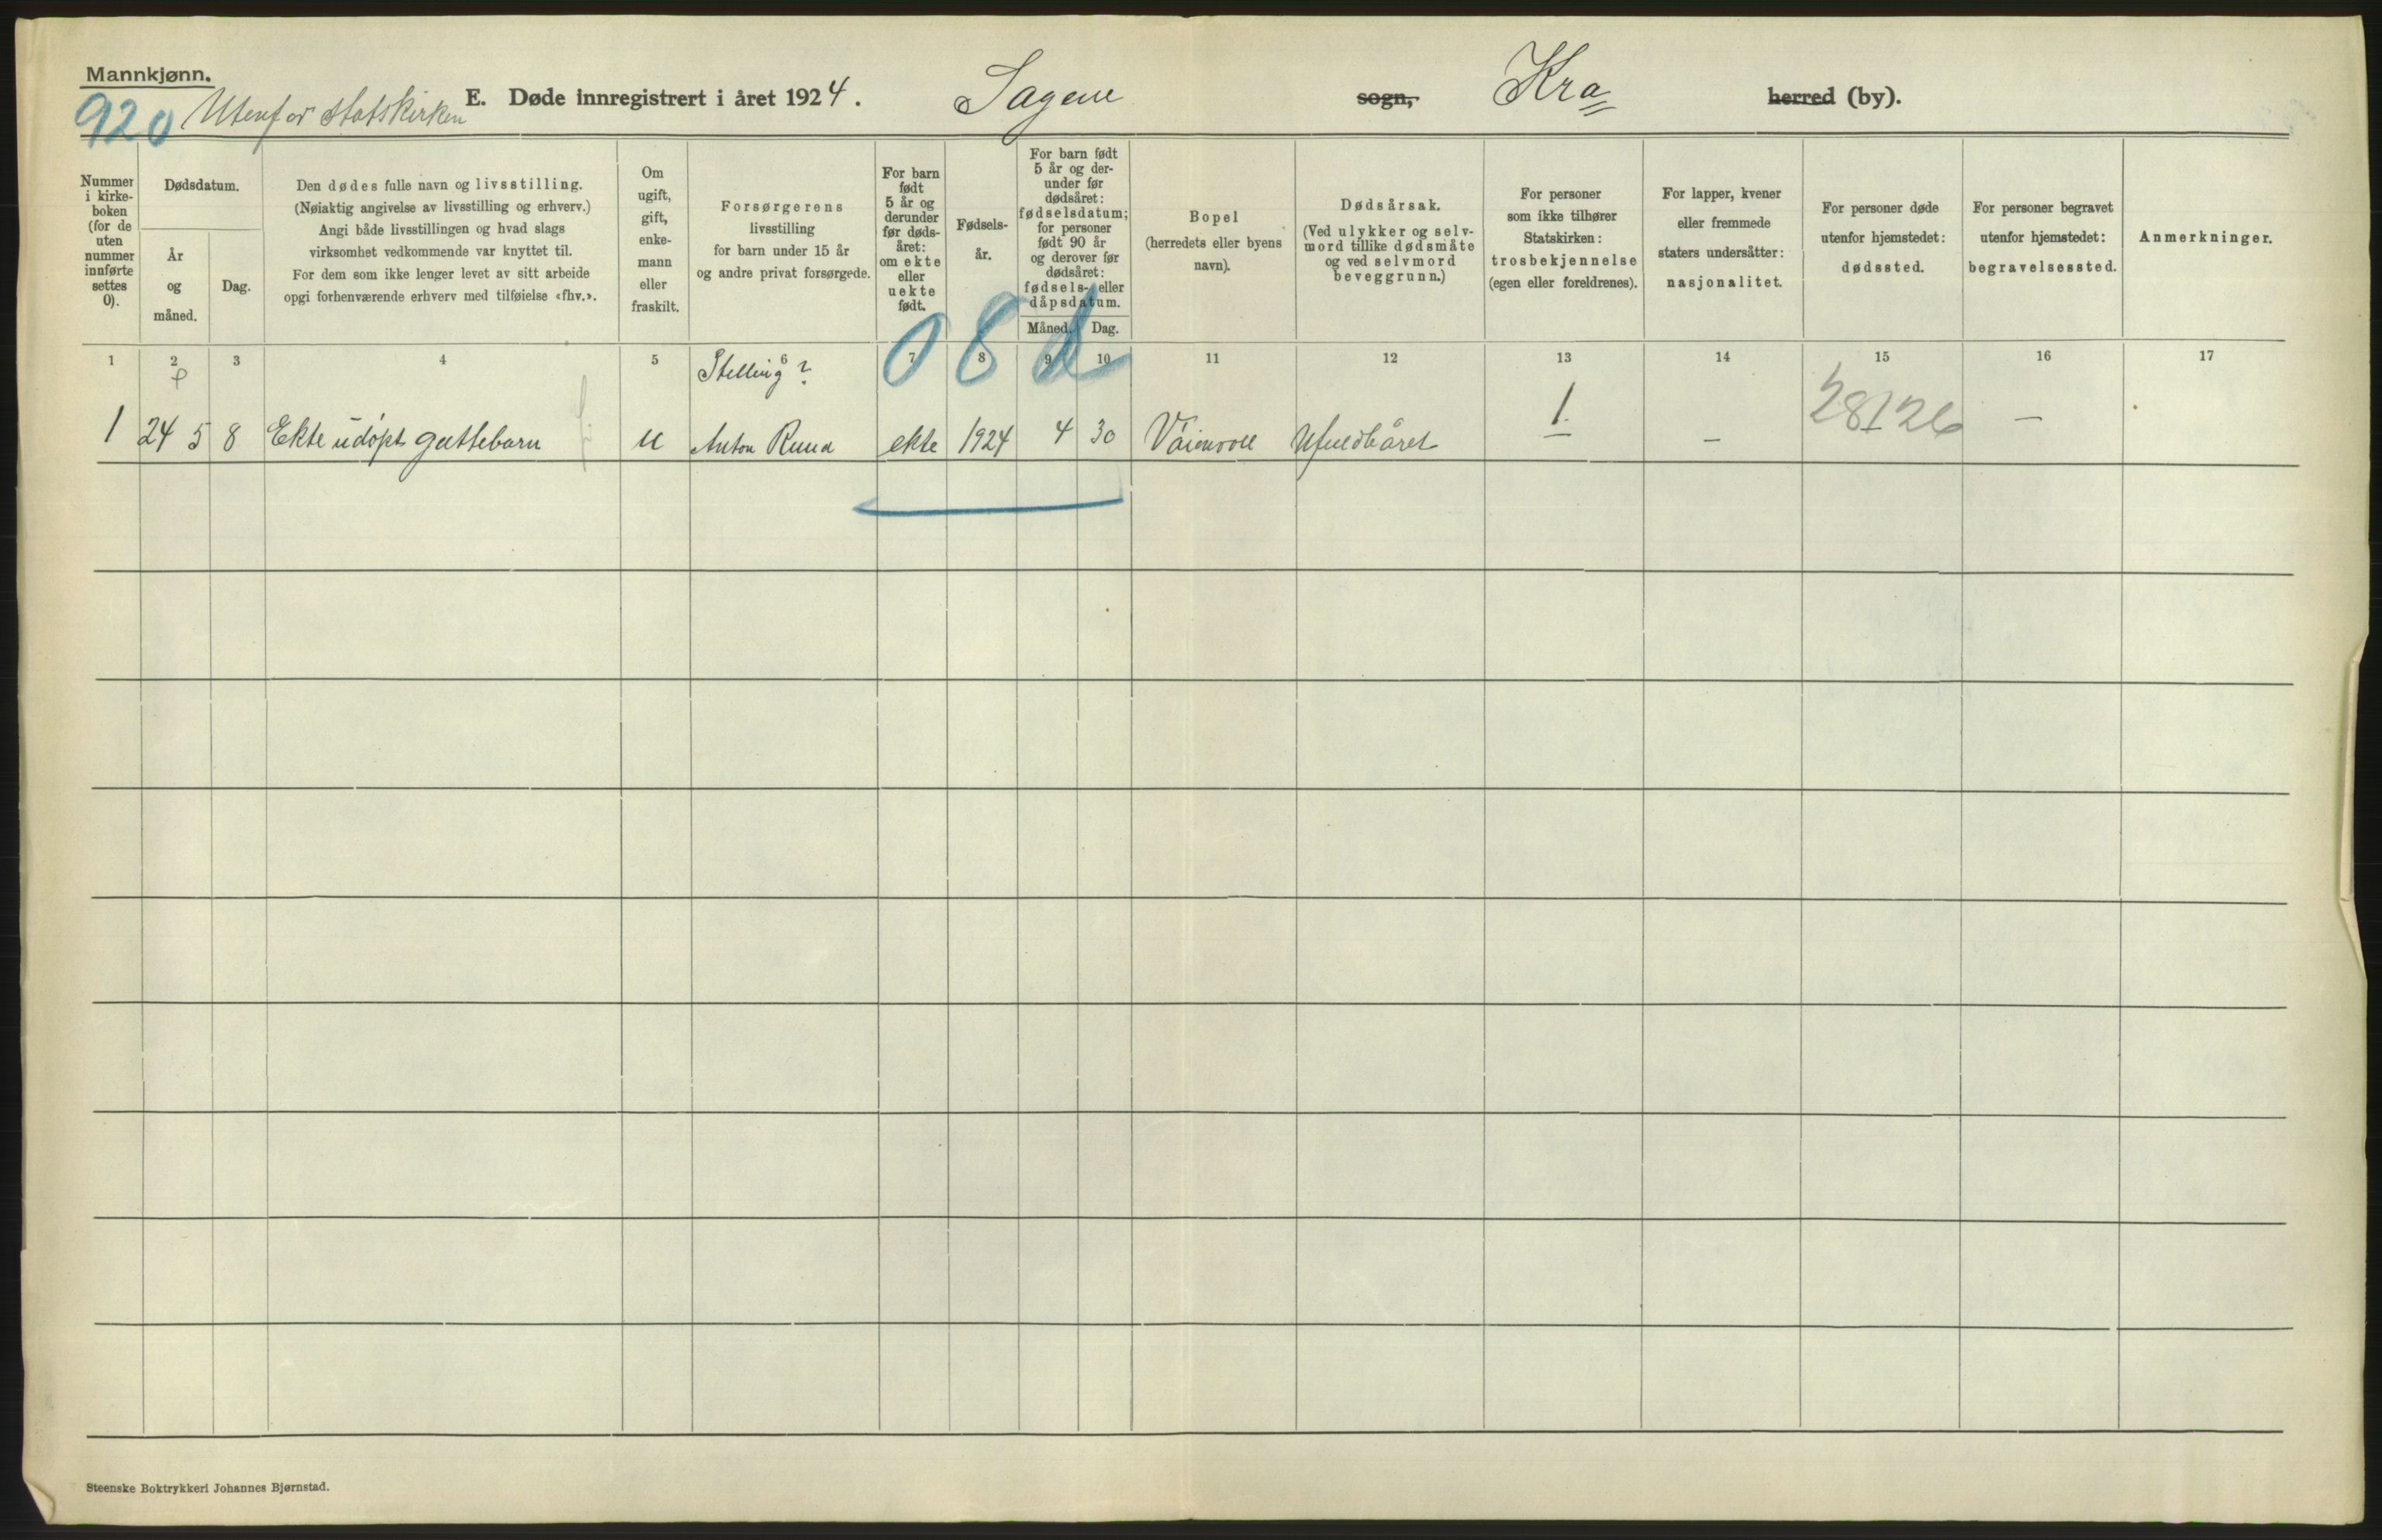 Mannkjønn.
920 Utenfor Statskirken E. Døde innregistrert i året 1924. Sagene sogn, Kra herred (by).
Nummer i kirke- boken (for de uten nummer innførte settes 0).
Dødsdatum.
År og måned.
Dag.
Den dødes fulle navn og livsstilling.
(Nøiaktig angivelse av livsstilling og erhverv.)
Angi både livsstillingen og hvad slags
virksomhet vedkommende var knyttet til.
For dem som ikke lenger levet av sitt arbeide
opgi forhenværende erhverv med tilføielse «fhv.».
Om ugift, gift, enke- mann eller fraskilt.
Forsørgerens
livsstilling
for barn under 15 år
og andre privat forsørgede.
For barn født 5 år og derunder før døds- året: om ekte eller uekte født.
Fødsels- år.
For barn født 5 år og der- under før dødsåret: fødselsdatum; for personer født 90 år og derover før dødsåret: fødsels- eller dåpsdatum.
Måned. Dag.
Bopel
(herredets eller byens
navn).
Dødsårsak.
(Ved ulykker og selv-
mord tillike dødsmåte
og ved selvmord
beveggrunn.)
For personer
som ikke tilhører
Statskirken:
trosbekjennelse
(egen eller foreldrenes).
For lapper, kvener
eller fremmede
staters undersåtter:
nasjonalitet.
For personer døde
utenfor hjemstedet:
dødssted.
For personer begravet
utenfor hjemstedet:
begravelsessted.
Anmerkninger.
1 2 3 4 5 6 7 8 9 10 11 12 13 14 15 16 17
Stelling?
08
1 24 5 8 Ekte udøpt guttebarn U Anton Ruud ekte 1924 4 30 Ufuldbåret 1. — 28126 —
Steenske Boktrykkeri Johannes Bjørnstad.